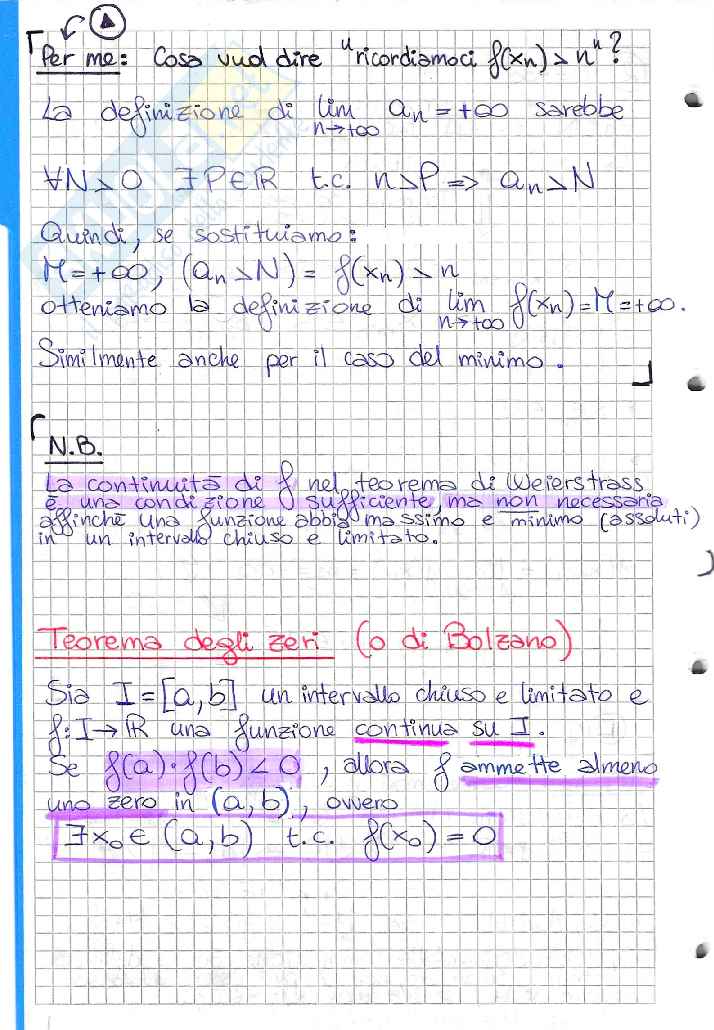 Per me: Cosa vuol dire "ricordiamoci f(xn) > n"?
La definizione di lim an = +∞ sarebbe
n→+∞
∀N>0 ∃P∈R t.c. n>P => an>N
Quindi, se sostituiamo:
M=+∞, (an>N) = f(xn) > n
otteniamo la definizione di lim f(xn)=M=+∞.
n→+∞
Similmente anche per il caso del minimo.
N.B.
La continuità di f nel teorema di Weierstrass
è una condizione sufficiente, ma non necessaria
affinché una funzione abbia massimo e minimo (assoluti)
in un intervallo chiuso e limitato.
Teorema degli zeri (o di Bolzano)
Sia I=[a,b] un intervallo chiuso e limitato e
f: I→R una funzione continua su I.
Se f(a)·f(b)<0, allora f ammette almeno
uno zero in (a,b), ovvero
∃x₀∈(a,b) t.c. f(x₀)=0